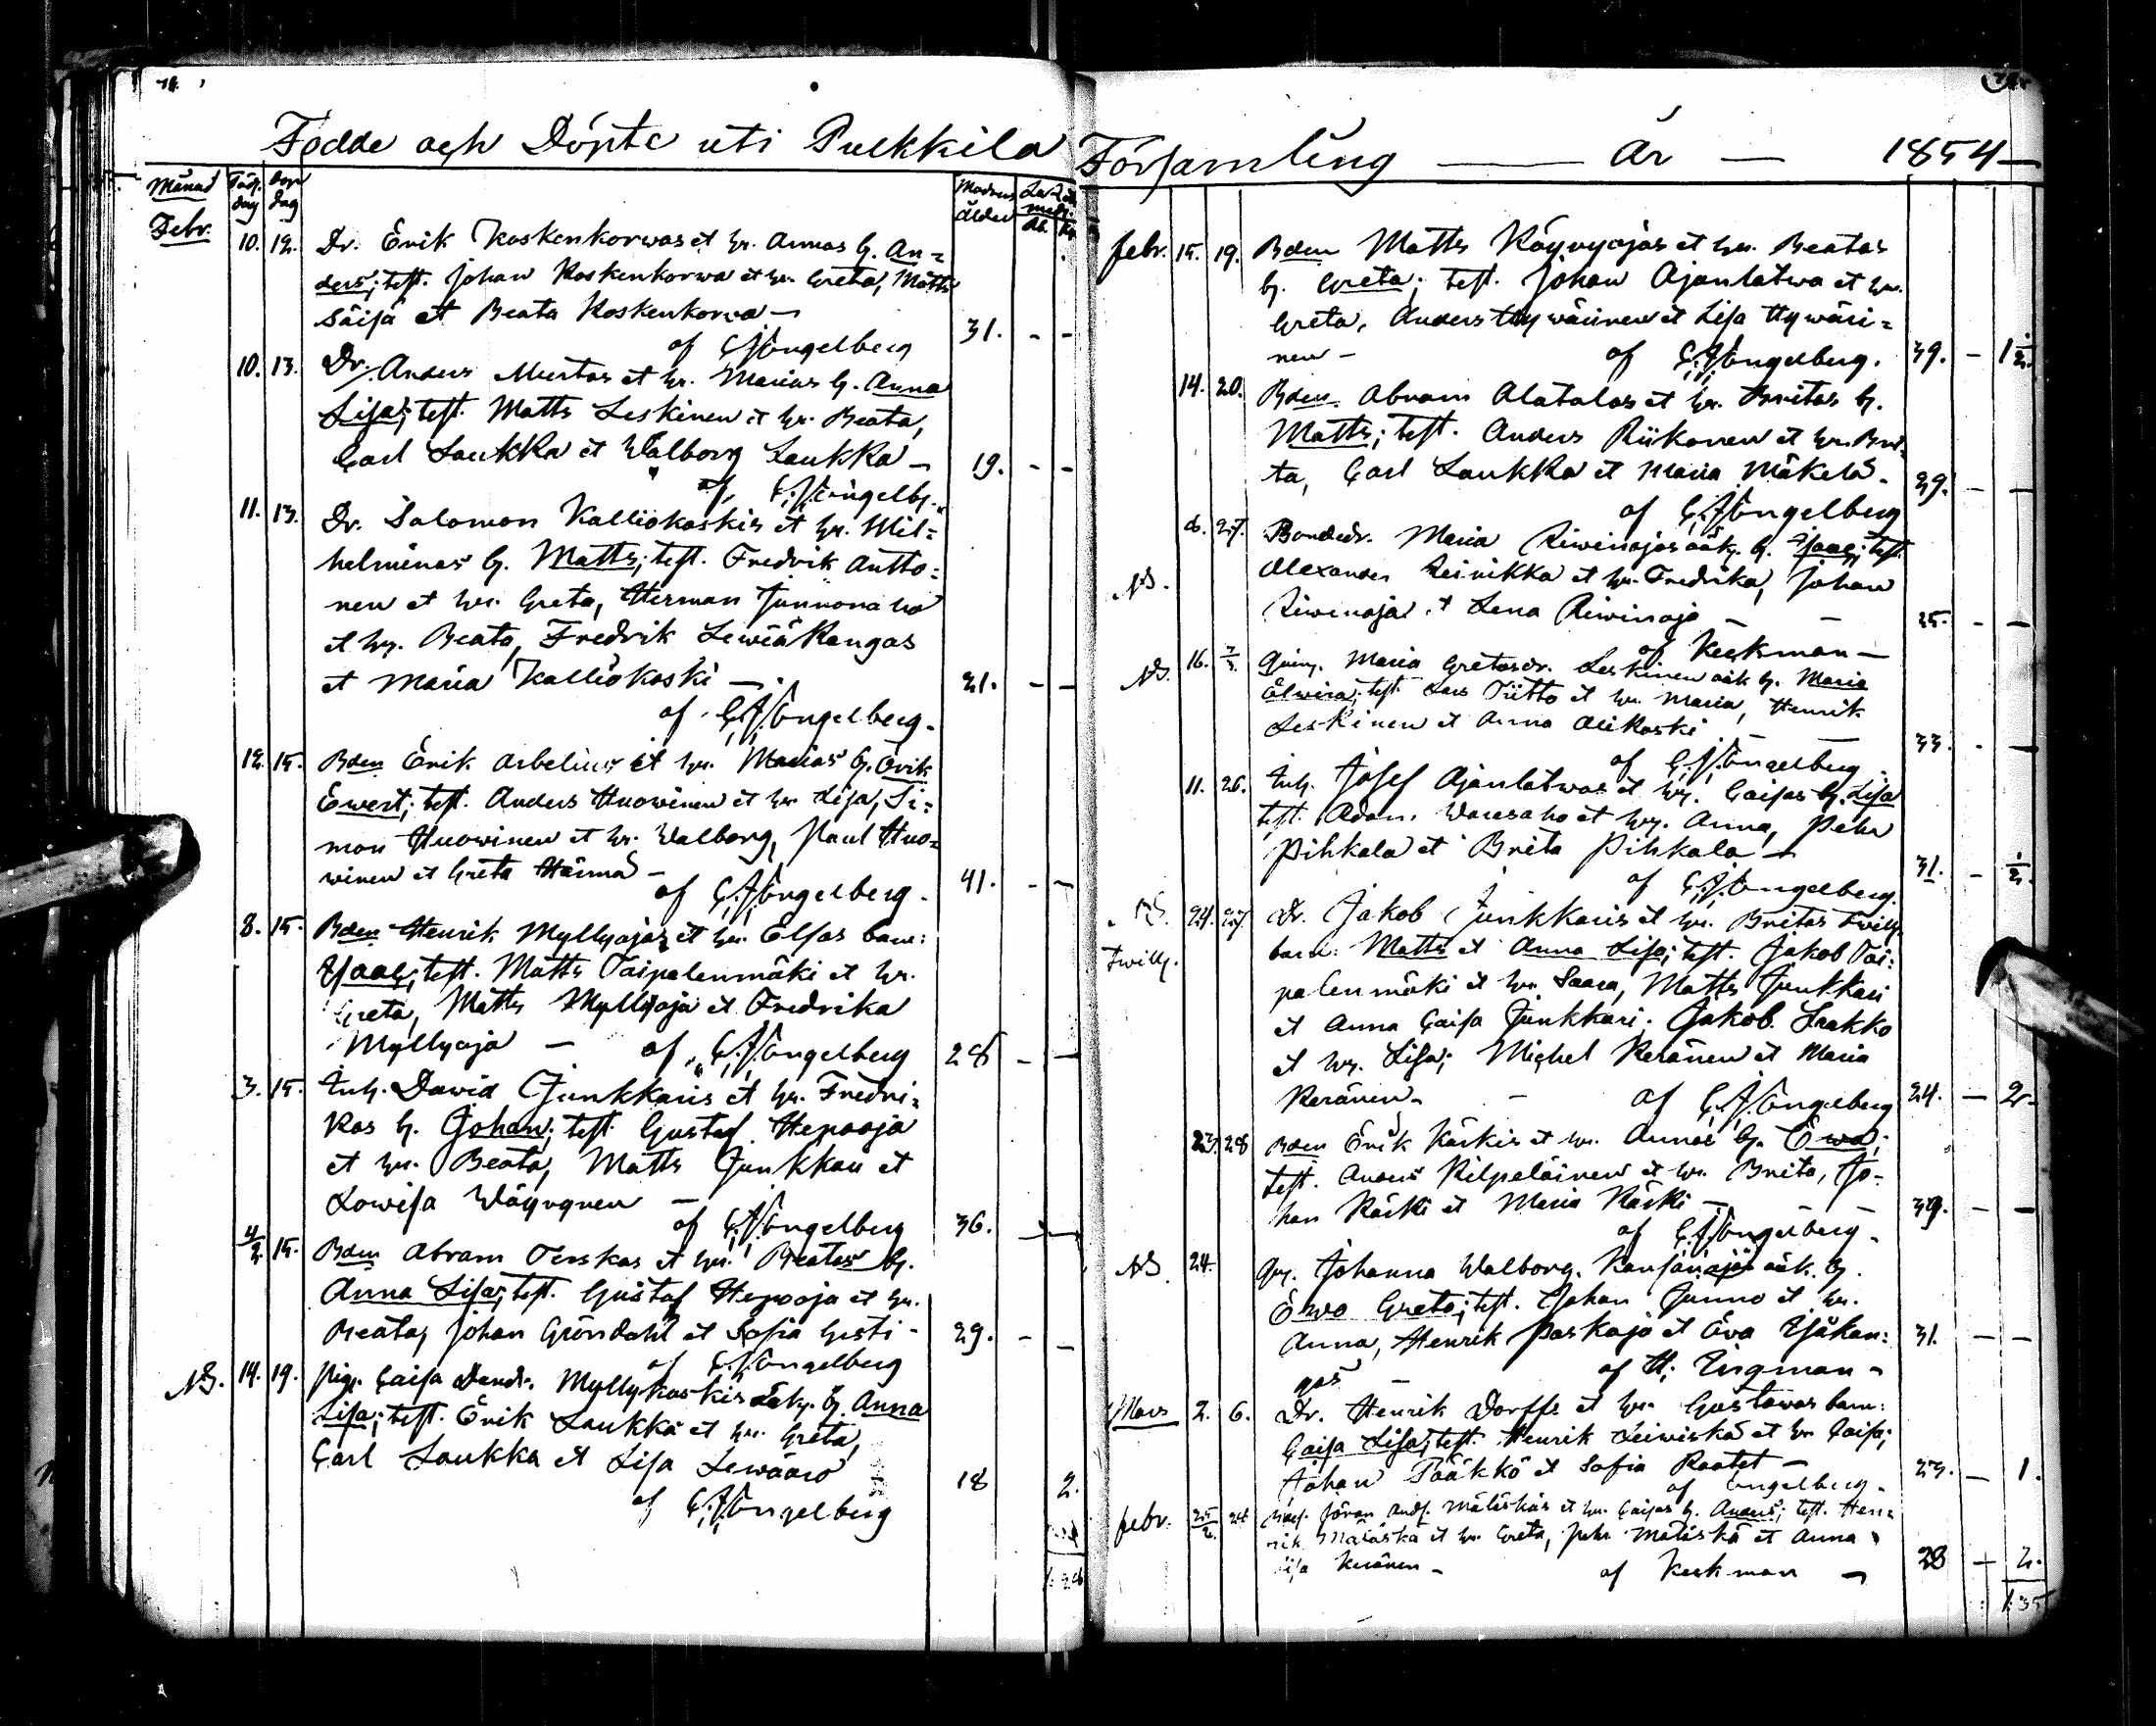 Födde och Döpte uti Pulkkila Församling — År — 1854
Månad Föd. dag Dop dag Modrens ålder
Febr. 10. 12. Dr. Erik Koskenkorwas et hr. Annas b. An=
ders; test. Johan Koskenkorwa et hr. Greta, Matts
Säisä et Beata Koskenkorva —
af CJEngelberg 31. - -
10. 13. Dr. Anders Murtos et hr. Marias b. Anna
Lisa; test. Matts Leskinen et hr. Beata,
Carl Laukka et Walborg Laukka — 19. - -
af CJEngelbg.
11. 13. Dr. Salomon Kalliokoskis et hr. Wil=
helminas b. Matts; test. Fredrik Antto=
nen et hr. Greta, Herman Junnonaho
et hr. Beata, Fredrik Lewiäkangas
et Maria Kalliokoski — 21. - -
af CJEngelberg.
12. 15. Bden Erik Arbelius et hr. Marias b. Erik
Ewert; test. Anders Huowinen et hr Lisa, Si=
mon Huowinen et hr. Walborg, Paul Huo=
winen et Greta Härmä —
af CJEngelberg. 41. - -
8. 15. Bden Henrik Myllyojas et hr. Elsas barn:
Isaac; test. Matts Taipalenmäki et hr.
Greta, Matts Myllyoja et Fredrika
Myllyoja — af CJEngelberg 28 - -
3. 15. Inh. Dawid Junkkaris et hr. Fredri=
kas b. Johan; test. Gustaf Hepooja
et hr. Beata, Matts Junkkari et
Lowisa Wäyrynen —
af CJEngelberg 36. - -
4/2 15. Bden Abram Terskas et hr. Beatas b.
Anna Lisa; test. Gustaf Hepooja et hr.
Beata, Johan Gröndahl et Sofia Gusti - 29. - -
af CJEngelberg
NB. 14. 19. Pig. Caisa Dand. Myllykoskis oäk. b. Anna
Lisa; test. Erik Laukka et hr. Greta,
Carl Laukka et Lisa Lewäaro 18 2.
af CJEngelberg
febr. 15. 19. Bden Matts Käyryojas et hr. Beatas
b. Greta; test. Johan Ajanlatwa et hr.
Greta, Anders Hywärinen et Lisa Hywäri=
nen — af CJEngelberg. 39. - 1 1/2.
14. 20. Bden Abram Alatalos et hr. Britas b.
Matts; test. Anders Riikonen et hr. Bri
ta, Carl Laukka et Maria Mäkelä. 39. - -
af CJEngelberg
6. 27. Bondedr. Maria Riwinojas oäk. b. Isaac; test.
NB. Alexander Reinikka et hr. Fredrika, Johan
Riwinoja et Lena Riwinoja — 25. - -
af Keckman —
NB. 16. Qwinp. Maria Gretasdr. Leskinen oäk b. Maria
Elwira; test. Lars Tiitto et hr. Maria, Henrik
Leskinen et Anna Alikoski — 33. - -
af CJEngelberg.
11. 26. Inh. Josef Ajanlatwas et hr. Caisas b. Lisa
test. Adam Waresaho et hr. Anna, Pehr
Pihkala et Brita Pihkala — 31. - 1/2.
af CJEngelberg.
NB. 24. 27. Dr. Jakob Junkkaris et hr. Britas twill.
Twill. barn: Matts et Anna Lisa; test. Jakob Tai=
palenmäki et hr Saara, Matts Junkkari
et Anna Caisa Junkkari. Jakob Laakko
et hr. Lisa; Michel Keränen et Maria
Keränen. - af CJEngelberg 24. - 2.
23. 28 Bden Erik Kärkis et hr. Annas b. Ewa;
test. Anders Kilpeläinen et hr. Brita, Jo=
han Kärki et Maria Kärki — 39. - -
af CJEngelberg.
NB 24. Johanna Walborg Kansanojas oäk. b.
Ewa Greta; test. Johan Junno et hr.
Anna, Henrik Paskoja et Eva Isokan= 31. - -
gas — af H. Zingman -
Mars 2. 6. Dr. Henrik Dorffs et hr. Gustawas barn:
Caisa Lisa; test. Henrik Leiwiskä et hr Caisa;
Johan Pääkkö et Sofia Raatet — 23. - 1.
af Engelberg.
febr. 25/2 Jöran Mäläskäs et hr. Caisas b. Anders; test. Hen=
rik Mäläskä et hr. Greta, Pehr Mäläskä et Anna
Lisa Keränen. af Keckman — 28 - 2.
1:35